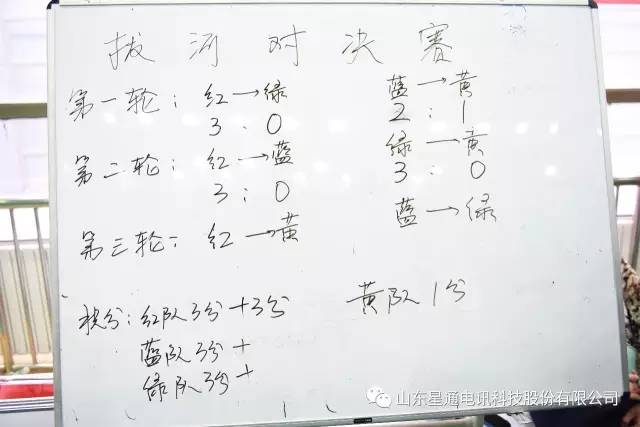 拔河对决赛
第一轮: 红→绿 蓝→黄
3:0 2:1
第二轮: 红→蓝 绿→黄
3:0 3:0
第三轮: 红→黄 蓝→绿
积分: 红队3分+3分 黄队1分
蓝队3分+
绿队3分+
山东星通电讯科技股份有限公司